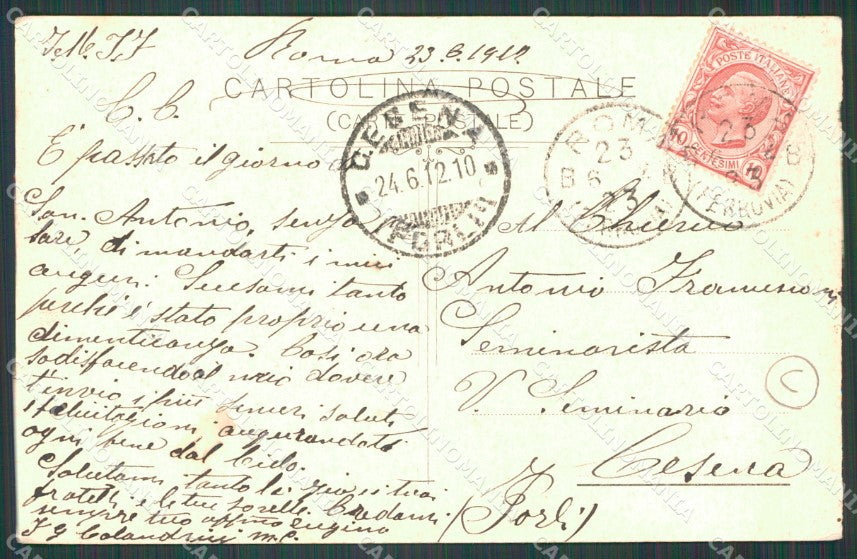 Roma 23.6.1912.
CARTOLINA POSTALE
C. C.
È passato il giorno
San. Antonio, senza
di mandarti i miei
auguri. Scusami tanto
perché è stato proprio una
dimenticanza. Così ora
sodisfacendo al mio dovere
t'invio i più sinceri saluti
felicitazioni augurandoti
ogni bene dal Cielo.
Salutami tanto
fratelli e le tue sorelle. Credami
sempre tuo affmo cugino
Al Chierico
Antonio Francesconi
Seminarista
V. Seminario
Cesena
(Forlì)
C
CESENA
24.6.12.10
(FORLI)
ROMA
23
6
(FERROVIA)
POSTE ITALIANE
CENTESIMI 10
CARTOLINOMANIA